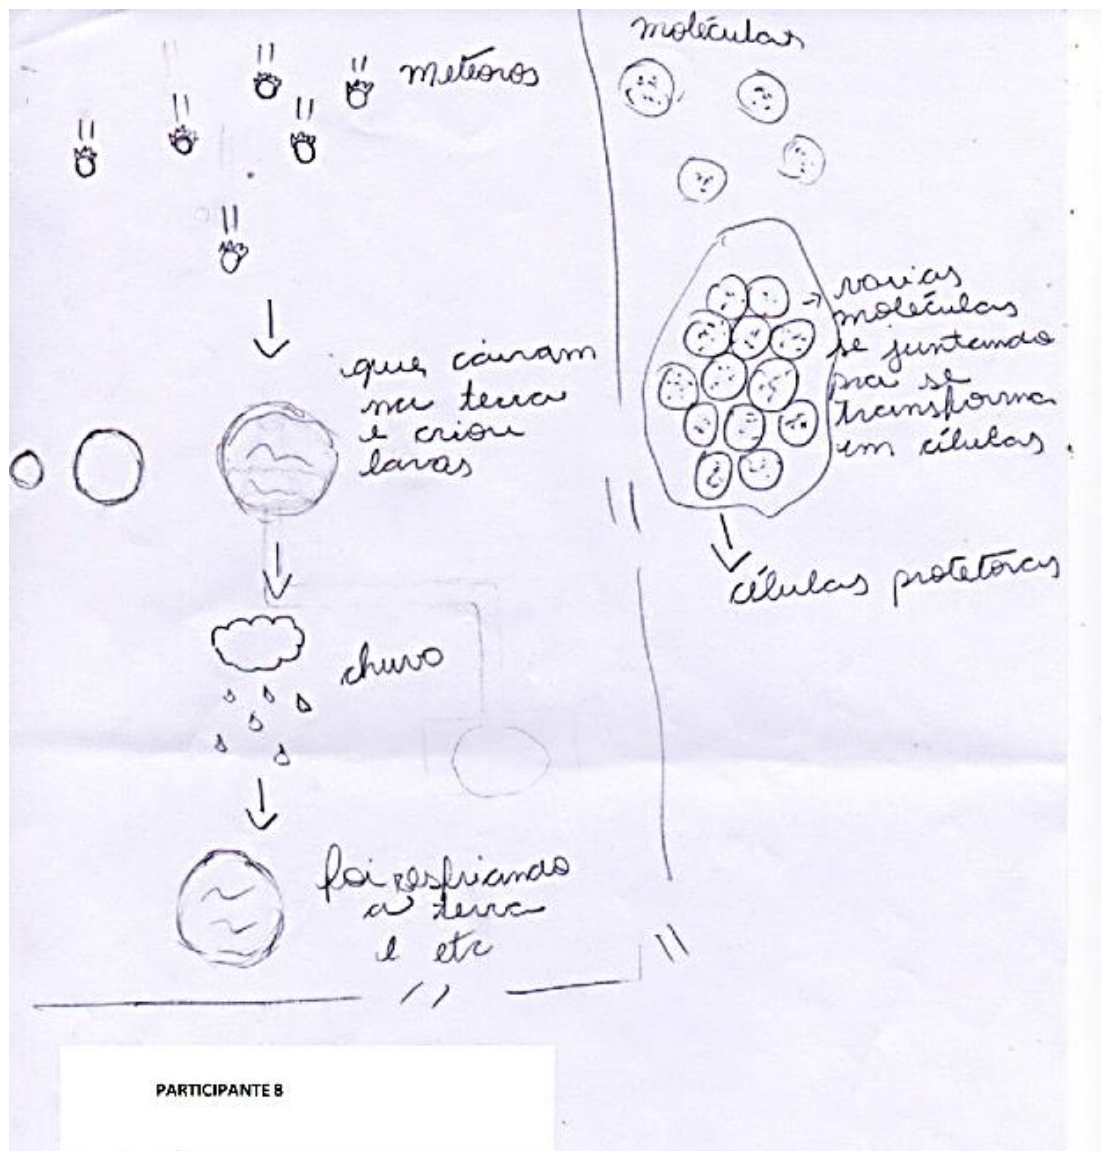 meteoros
que, cairam
na terra
e criou
lavas
chuva
foi resfriando
a terra
e etc
moléculas
varias
moléculas
se juntando
pra se
transforma
em células
células protetoras
PARTICIPANTE 8